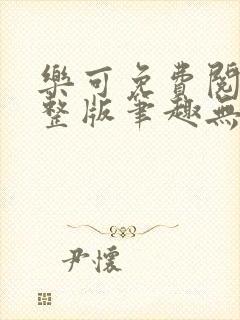 樂可免費閱
整版筆趣無
尹懷